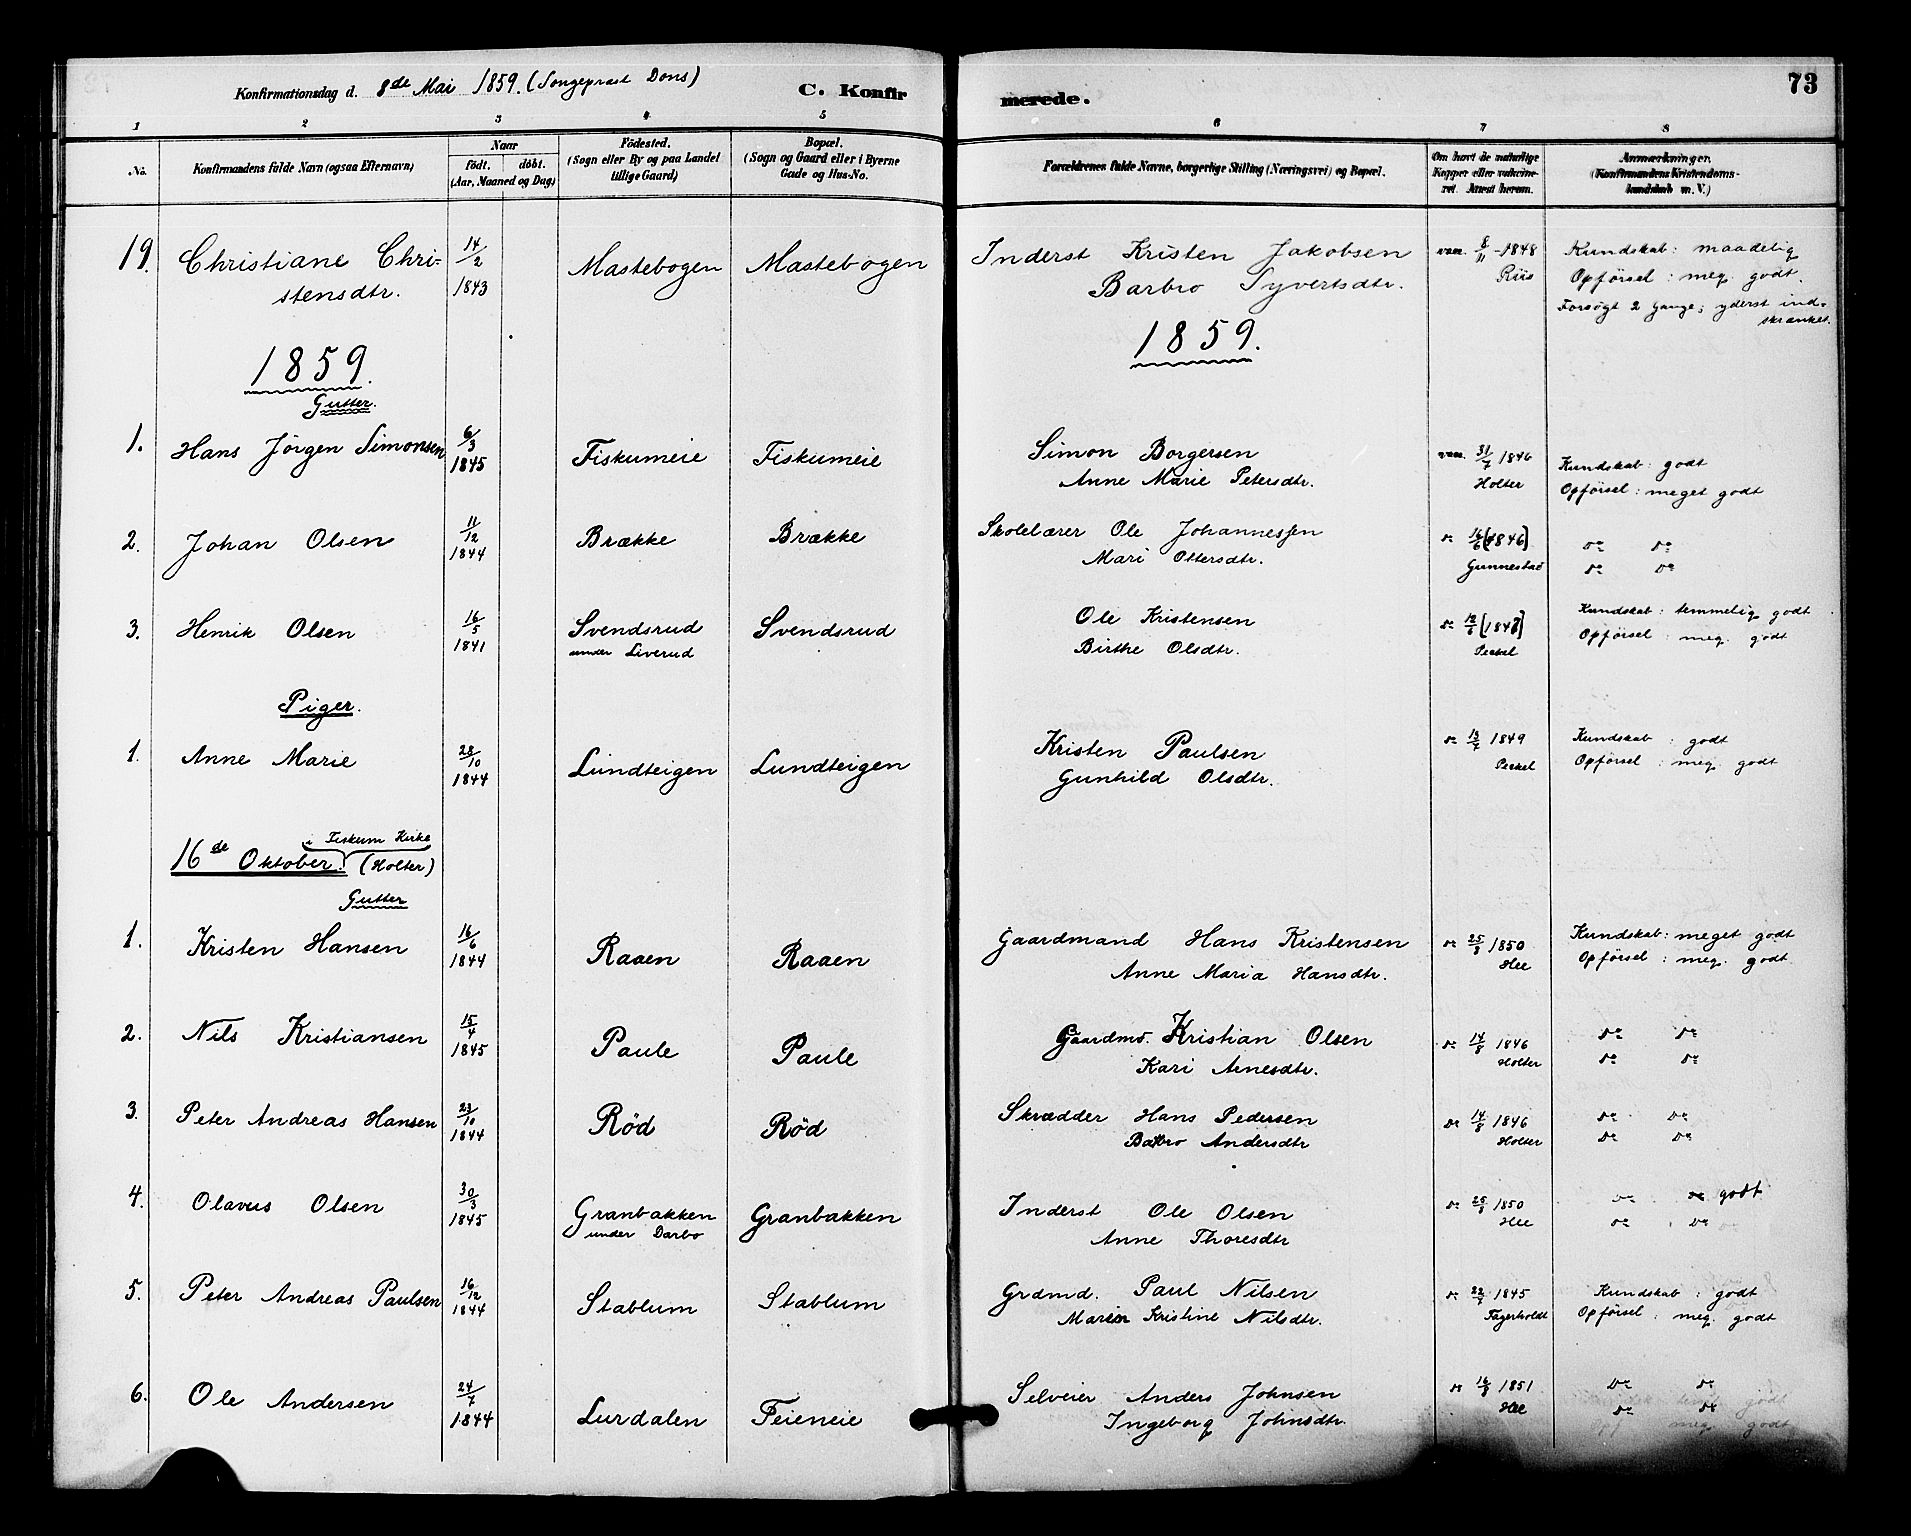 Konfirmationsdag d. 8de Mai 1859. (Songeprast Dons) C. Konfir merede. 73
1 2 3 4 5 6 7 8
No. Konfirmandens fulde Navn (ogsaa Efternavn) Naar født. døbt. (Aar, Maaned og Dag) Fødested. (Sogn eller By og paa Landet tillige Gaard) Bopæl. (Sogn og Gaard eller i Byerne Gade og Hus-No. Forældrenes fulde Navne, borgerlige Stilling (Næringsvei) og Bopæl. Om havt de naturlige Kopper eller vaccineret. Attest herom. Anmærkninger. (Konfirmandens Kristendomskundskab m. V.)
19. Christiane Chri- 14/2 Mastebogen Mastebogen Inderst Kristen Jakobsen vac. 8/11 -1848 Kundskab: maadelig
stensdtr. 1843 Barbro Syvertsdtr. Riis Opførsel: meg. godt.
Forsøgt 2 Gange; yderst ind-
skrænket.
1859. 1859.
Gutter.
1. Hans Jørgen Simonsen 6/3 Fiskumeie Fiskumeie Simon Borgersen vac. 31/7 1846 Kundskab: godt
1845 Anne Marie Petersdtr. Holter Opførsel: meget godt
2. Johan Olsen 11/12 Brække Brække Skolelærer Ole Johannessen do 16/6 [1846] do do
1844 Mari Ottersdtr. Gunnestad do do
3. Henrik Olsen 16/5 Svendsrud Svendsrud Ole Kristensen do Kundskab: temmelig godt
1841 under Liverud Birthe Olsdtr. Opførsel: meg. godt
Piger.
1. Anne Marie 28/10 Lundteigen Lundteigen Kristen Paulsen do 13/7 1849 Kundskab: godt
1844 Gunhild Olsdtr. Opførsel: meg. godt
i Fiskum Kirke
16de Oktober. (Holter)
Gutter
1. Kristen Hansen 16/6 Raaen Raaen Gaardmand Hans Kristensen do 25/8 1850 Kundskab: meget godt
1844 Anne Maria Hansdtr. Hee Opførsel: meg. godt
2. Nils Kristiansen 15/4 Paule Paule Gaardmd. Kristian Olsen do 14/8 1846 do do
1845 Kari Arnesdtr. Holter do do
3. Peter Andreas Hansen 23/10 Rød Rød Skrædder Hans Pedersen do 14/8 1846 do do
1844 Barbro Andersdtr Holter do do
4. Olavus Olsen 30/3 Granbakken Granbakken Inderst Ole Olsen do 25/8 1850 do godt
1845 under Darbo Anne Thoresdtr Hee do : do
5. Peter Andreas Paulsen 16/12 Stablum Stablum Grdmd. Paul Nilsen do 22/7 1845 Kundskab: godt
1844 Maria Kristine Nilsdtr. Fagerholdt Opførsel: meg. godt
6. Ole Andersen 24/7 Lurdalen Feieneie Selveier Anders Johnsen do 16/8 1851 do do
1844 Ingeborg Johnsdtr. Hee do do